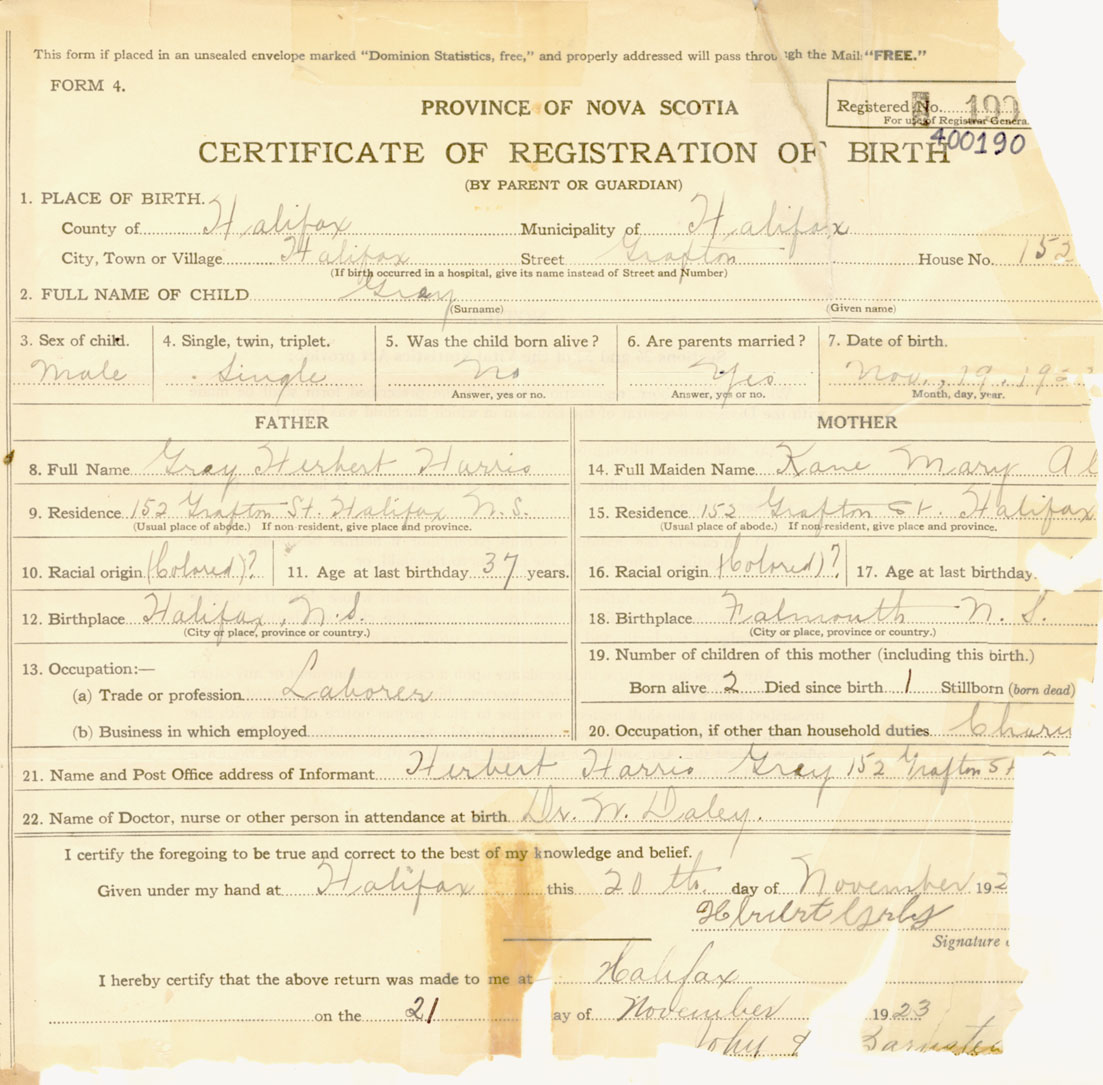 This form if placed in an unsealed envelope marked "Dominion Statistics, free," and properly addressed will pass through the Mail "FREE."
FORM 4.
PROVINCE OF NOVA SCOTIA
Registered No. 190
For use of Registrar Genera
400190
CERTIFICATE OF REGISTRATION OF BIRTH
(BY PARENT OR GUARDIAN)
1. PLACE OF BIRTH.
County of Halifax Municipality of Halifax
City, Town or Village Halifax Street Grafton House No. 152
(If birth occurred in a hospital, give its name instead of Street and Number)
2. FULL NAME OF CHILD Gray
(Surname) (Given name)
3. Sex of child. 4. Single, twin, triplet. 5. Was the child born alive? 6. Are parents married? 7. Date of birth.
Male Single No Yes Nov., 19, 192
Answer, yes or no. Answer, yes or no. Month, day, year.
FATHER MOTHER
8. Full Name Gray Herbert Harris 14. Full Maiden Name Kane Mary Al
9. Residence 152 Grafton St. Halifax N.S. 15. Residence 152 Grafton St. Halifax
(Usual place of abode.) If non-resident, give place and province. (Usual place of abode.) If non-resident, give place and province.
10. Racial origin (Colored)? 11. Age at last birthday 37 years. 16. Racial origin (Colored)? 17. Age at last birthday
12. Birthplace Halifax, N.S. 18. Birthplace Falmouth N.S.
(City or place, province or country.) (City or place, province or country.)
13. Occupation:— 19. Number of children of this mother (including this birth.)
(a) Trade or profession Laborer Born alive 2 Died since birth 1 Stillborn (born dead)
(b) Business in which employed 20. Occupation, if other than household duties
21. Name and Post Office address of Informant Herbert Harris Gray 152 Grafton St
22. Name of Doctor, nurse or other person in attendance at birth Dr. W. Daley.
I certify the foregoing to be true and correct to the best of my knowledge and belief.
Given under my hand at Halifax this 20 th. day of November 192
Herbert Gray
Signature
I hereby certify that the above return was made to me at Halifax
on the 21 ay of November 1923
John